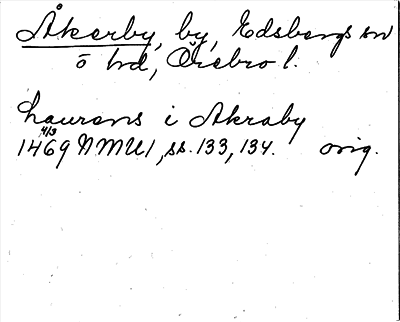 Åkerby, by, Edsbergs sn
ö hd, Örebro l.
Laurens i Akraby
4/3
1469 NMU1, ss. 133, 134. orig.